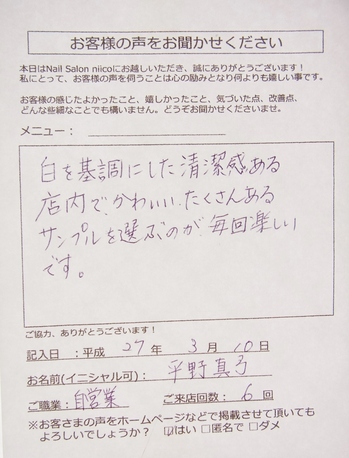 お客様の声をお聞かせください
本日はNail Salon niicoにお越しいただき、誠にありがとうございます!
私にとって、お客様の声を伺うことは心の励みとなり何よりも嬉しい事です。
お客様の感じたよかったこと、嬉しかったこと、気づいた点、改善点、
どんな些細なことでも構いません。どうぞお聞かせくださいませ。
メニュー:
白を基調にした清潔感ある
店内で、かわいい、たくさんある
サンプルを選ぶのが毎回楽しい
です。
ご協力、ありがとうございます!
記入日:平成 27 年 3 月 10 日
お名前(イニシャル可): 平野真弓
ご職業: 自営業 ご来店回数: 6 回
※お客さまの声をホームページなどで掲載させて頂いても
よろしいでしょうか? ☑はい □匿名で □ダメ